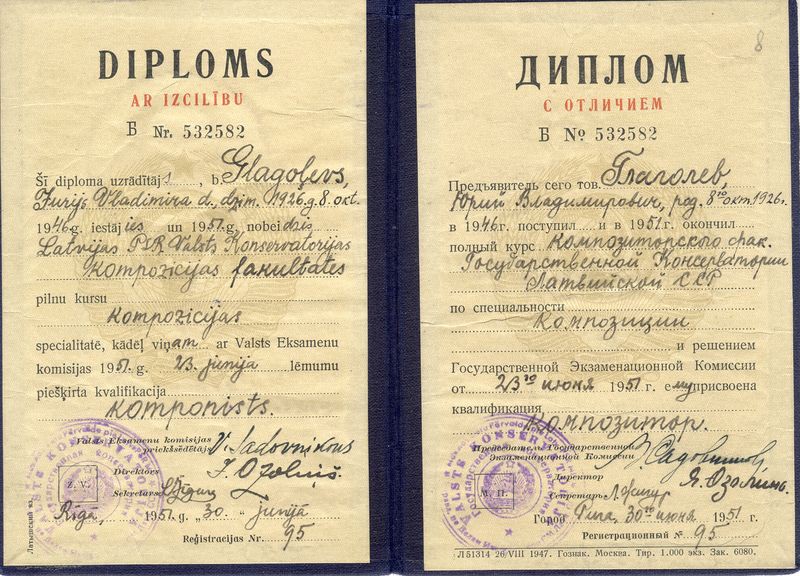 DIPLOMS
AR IZCILĪBU
Б Nr. 532582
Šī diploma uzrādītājs, b. Glagoļevs,
Jurijs Vladimira d., dzim. 1926.g. 8. okt.
1946.g. iestājies un 1951.g. nobeidzis
Latvijas PSR Valsts Konservatorijas
Kompozicijas fakultātes
pilnu kursu
kompozicijas
specialitatē, kādēļ viņam ar Valsts Eksamenu
komisijas 1951. g. 23. jūnija lēmumu
piešķirta kvalifikacija
komponists.
Valsts Eksamenu komisijas
priekšsēdētājs V. Sadovņikovs
Direktors J. Ozoliņš.
Sekretars
Z. V.
Rīgā, 1951. g. „30.„ jūnijā
Reģistracijas Nr. 95
Латвийский яз.
8
ДИПЛОМ
С ОТЛИЧИЕМ
Б № 532582
Предъявитель сего тов. Глаголев,
Юрий Владимирович, род. 8го окт. 1926.
в 1946г. поступил и в 1951г. окончил
полный курс Композиторского фак.
Государственной Консерватории
Латвийской ССР
по специальности
Композиции
и решением
Государственной Экзаменационной Комиссии
от 23го июня 1951 г. ему присвоена
квалификация
композитор.
Председатель Государственной
Экзаменационной Комиссии В. Садовников
Директор Я. Озолинь.
Секретарь
М. П.
Город Рига, 30го июня 1951 г.
Регистрационный № 95
Л51314 26/VIII 1947. Гознак. Москва. Тир. 1.000 экз. Зак. 6080.